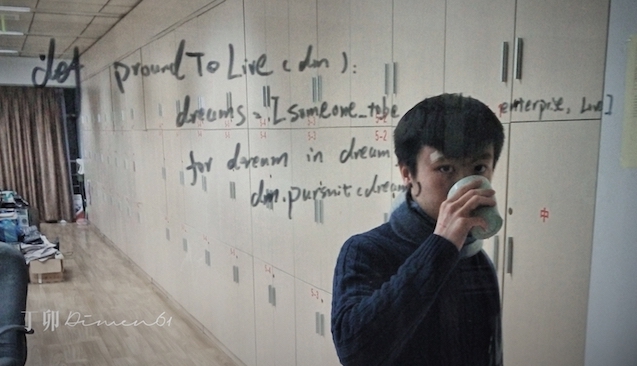 def proundToLive(din):
dreams = [someone_tobe enterprise, Live]
for dream in dream
din.pursuit(dream)
5-2
5-2
5-3
中
丁卯 Dimen61